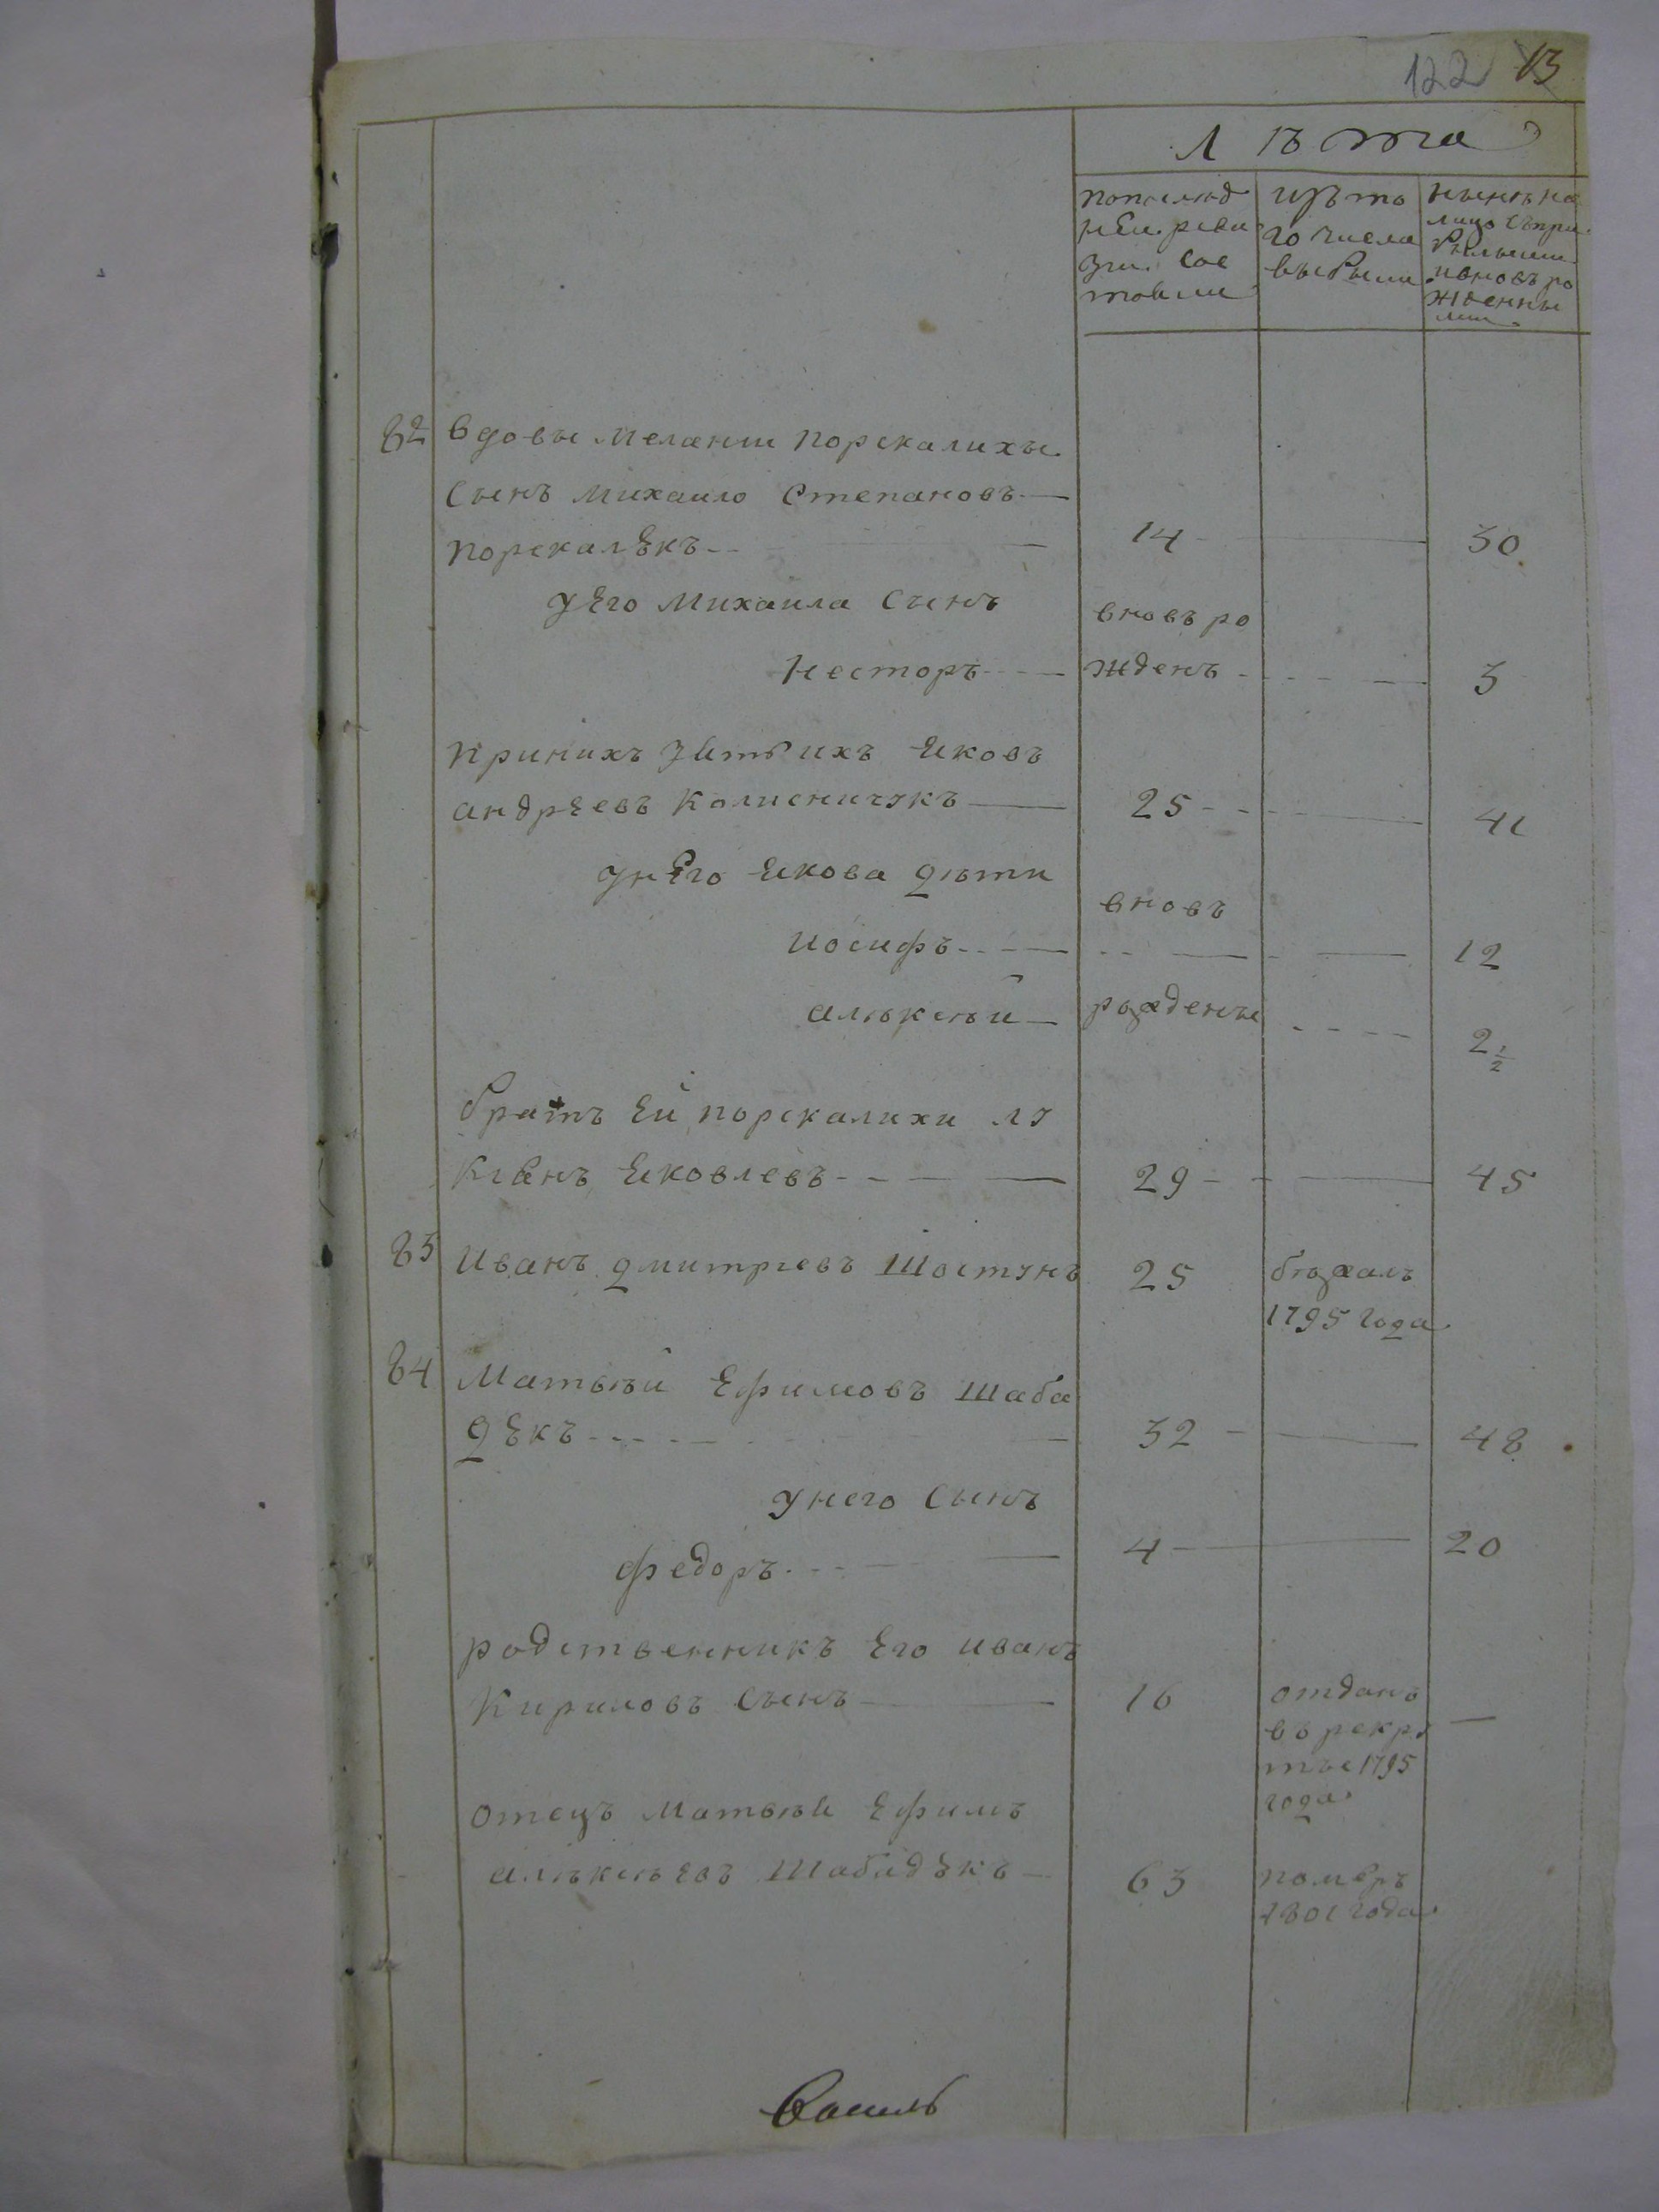 122 13
Лѣта
попослѣд
нѣи реви
зіи сос
тояли
изъ то
го числа
выбыли
нынѣ на
лицо съпри
былыми
ивновь ро
жденны
ми
82 вдовы мелании порскалихы
сынъ михаило степановъ
порскалѣкъ 14 30
уЕго михаила сынъ вновь ро
несторъ жденъ 3
принихъ зять ихъ яковъ
андреевъ колисничукъ 25 41
унЕго якова дѣти вновь
иосифъ 12
алѣксѣй рождены 2 1/2
братъ Ей порскалихи лу
кіянъ яковлевъ 29 45
83 иванъ дмитріевъ шостунъ 25 бѣжалъ
1795 года
84 матвѣй Ефимовъ шаба
дѣкъ 32 48
унего сынъ
федоръ 4 20
родственникъ Его иванъ
кириловъ сынъ 16 отданъ
въ рекру
ты 1795
года
отецъ матвѣя Ефимъ
алѣксѣевъ шабадѣкъ 63 померъ
1801 года